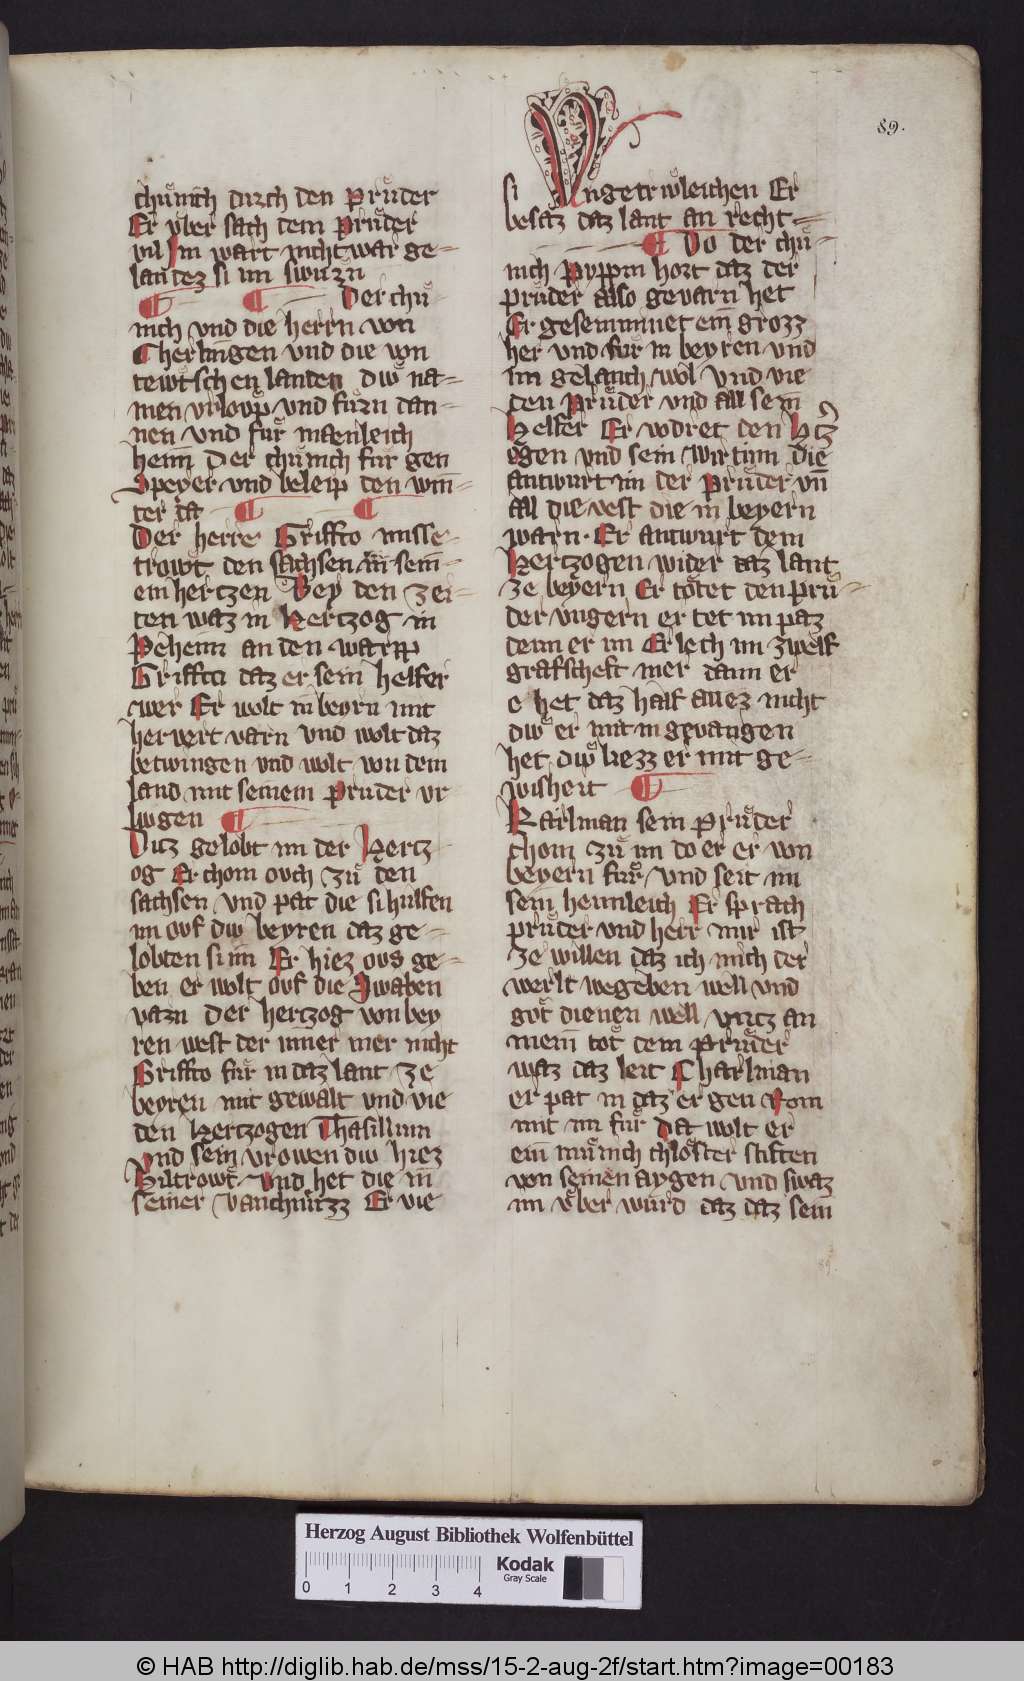 89.
chuͤnich durch den Pruͤder
Er vͤber sach dem Pruͤder
vil Im wart nicht war ge-
laistez si im swuͤrn
Der chuͤ
nich vnd die herrn von
Cherlingen vnd die von
tewtschen landen diwͤ na-
men vrlovp vnd fuͤrn dan-
nen vnd fuͤr maenleich
heim Der chuͤnich fuͤr gen
Speyer vnd beleip den win-
ter da
Der herre Griffto misse-
trowt den sachsen in sein-
em hertzen Bey den zei-
ten waz in Hertzog in
Peheim an den warp
Griffto daz er sein helfer
wer Er wolt in beyrn mit
herwert varn vnd wolt daz
betwingen vnd wolt von dem
land mit seinem Pruder vr
livgen
Ditz gelobt im der Hertz
og Er chom ovch zuͤ den
sachsen vnd pat die si hulfen
im ovf diw beyren daz ge-
lobten si im Er hiez ovs ge-
ben er wolt ovf die Swaben
varn der hertzog von bey
ren west der inner mer nicht
Griffto fuͤr in daz lant ze
beyren mit gewalt vnd vie
den Hertzogen Thasillium
Vnd sein vrowen diw hiez
Hiltrowt vnd het die in
seiner vanchnuͤzz Er vie
si Vngetriwleichen Er
besaz daz lant an recht-
Do der chuͤ-
nich Pyppin hort daz der
pruͤder also gevarn het
Er gesemmnet ein grozz
her vnd fuͤr in beyren vnd
im gelanch wol vnd vie
den Pruͤder vnd all sein
Helfer Er vodret den Htz
ogen vnd sein wirtinn die
antwurt im der Pruͤder vn̄
all die vest die in beyern
warn. Er antwurt dem
Hertzogen wider daz lant
ze beyern Er toͤtet den pruͤ-
der vngern er tet im paz
denn er im Er lech im zwelf
grafscheft mer dann er
e het daz half allez nicht
diwͤ er mit in gevangen
het diwͤ liezz er mit ge-
wisheit
Karlman sein Pruͤder
chom zuͤ im do er er von
beyern fuͤr vnd seit im
sein heimleich Er sprach
pruͤder vnd herr mir ist
ze willen daz ich mich der
werlt wegeben well vnd
got dienen well vntz an
mein toͤt dem Pruͤder
waz daz leit Charlman
er pat in daz er gen Rom
mit im fuͤr Da wolt er
ein muͤnich chloͤster stiften
von seinen aygen vnd swaz
im vͤber wurd daz daz sein
89.
Herzog August Bibliothek Wolfenbüttel
0 1 2 3 4
Kodak
Gray Scale
© HAB http://diglib.hab.de/mss/15-2-aug-2f/start.htm?image=00183